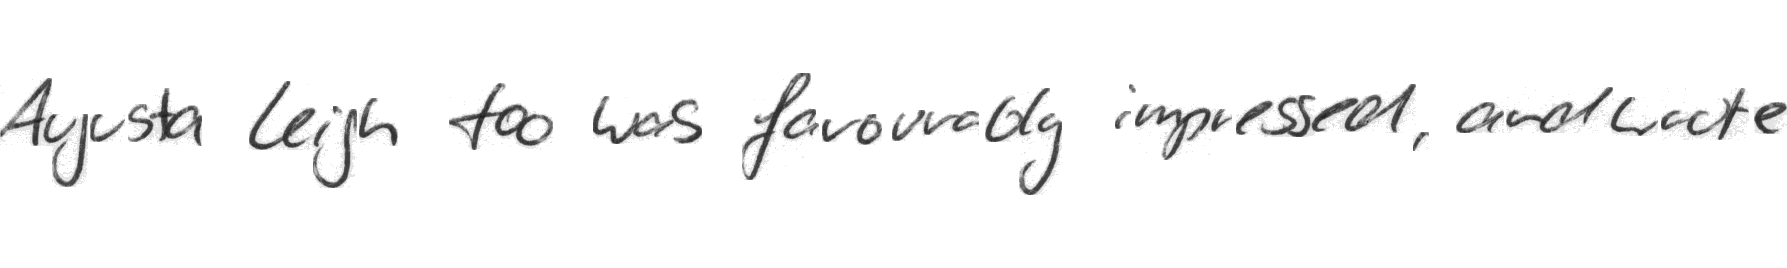 Augusta Leigh too was favourably impressed, and wrote